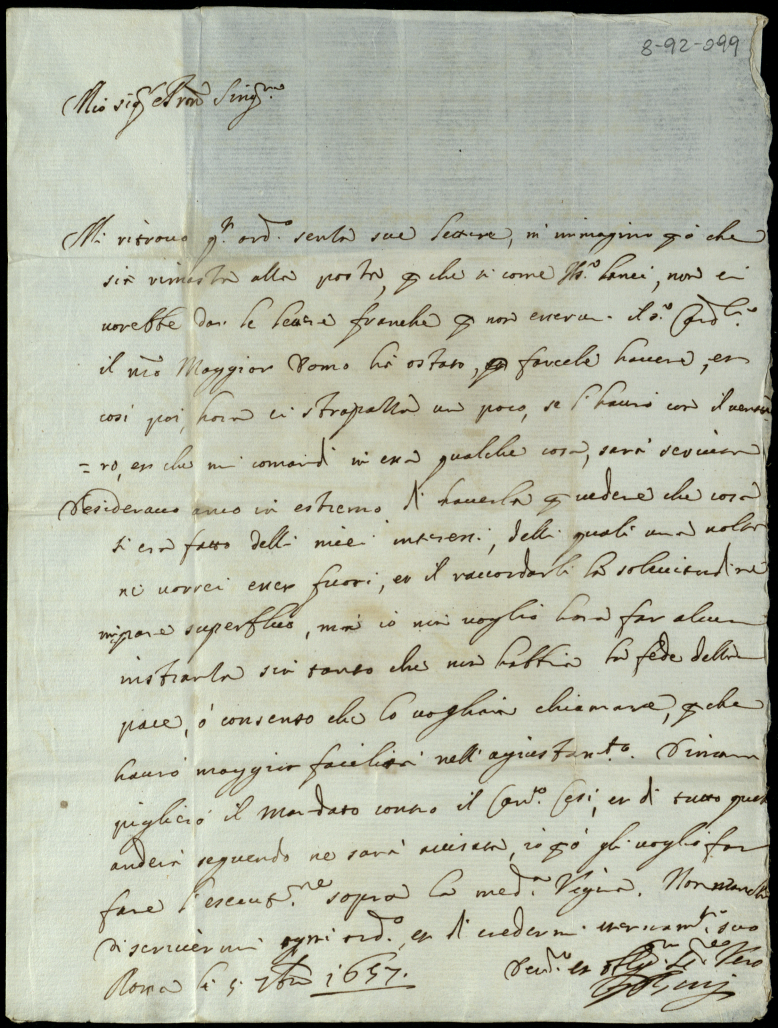 8-92-099
Mio sig.r e Pron Sing.mo
Mi ritrovo q.to ord.o senza sue lettere, m'immagino p.ò che
sia rimasta alla posta, p che si come lanci, non ci
vorebbe dar le lettere franche p non esservi il s.r Card.le
il mio Maggior domo hà ostato, p farcele havere, et
così poi, hora ci strapazza un poco, se l'havrò con il ventu=
=ro, et che mi comandi in essa qualche cosa, sarà servita
Desideravo anco in estremo di haverla p vedere che cosa
si era fatto delli miei interessi, delli quali una volta
ne vorrei esser fuori, et il raccordarli la solicitudine
mi pare superfluo, mà io non voglio hora far alcuna
instanza sin tanto che non habbia la fede della
pace, ò consenso che lo vogliam chiamare, p che
havrò maggior facilità nell'agiustam.to.
piglierò il mandato contro il Card. Cesi, et di tutto quel
anderà seguendo ne sarà avisata, io p.ò gli voglio far
fare l'esecut.ne sopra la med.a Vigna. Non manchi
di scrivermi ogni ord.o, et di credermi suo
Roma li 5. 7bre 1657.
Dev.mo et Obl.mo Se.re Vero